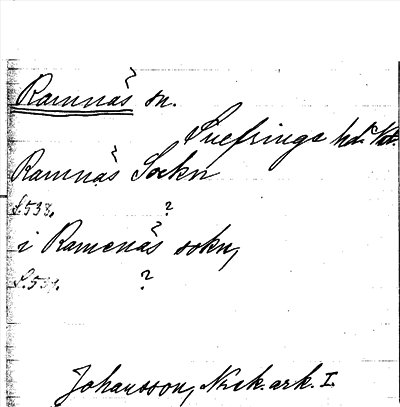 Ramnäs sn.
Snefringe hd. Vstm.
Ramnäs Sockn
f.538. ?
i Ramenäs sokn,
f.539. ?
Johansson, N:rk.ark. I.